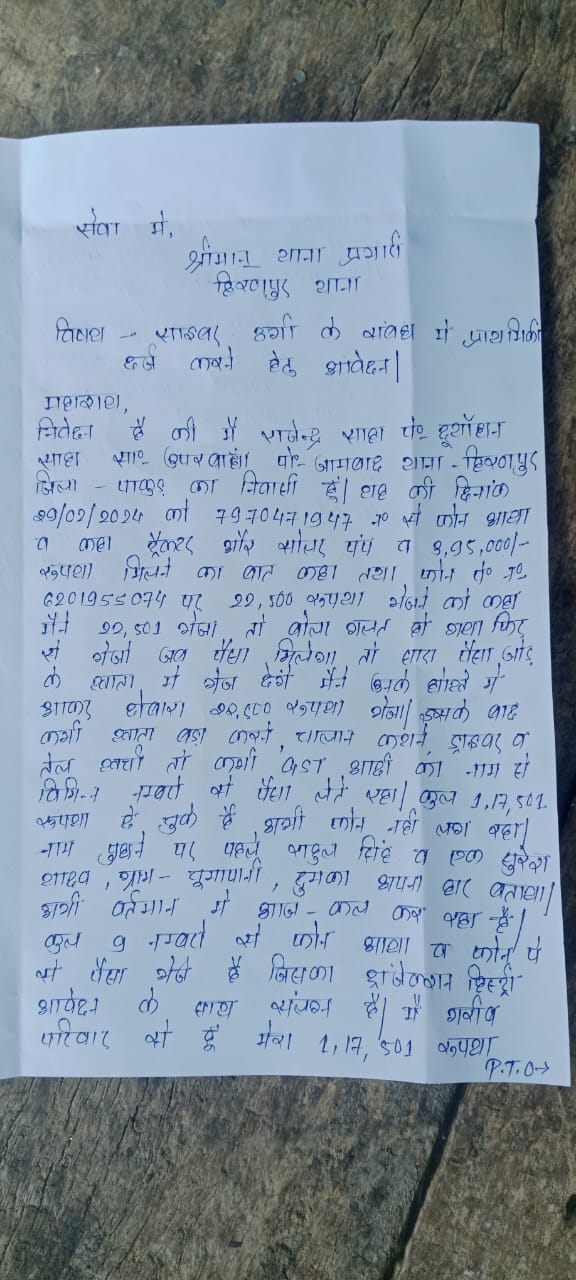 सेवा में,
श्रीमान् थाना प्रभारी
हिरणपुर थाना
विषय - साइबर ठगी के संबंध में प्राथमिकी
दर्ज करने हेतु आवेदन|
महाशय,
निवेदन है की मैं राजेन्द्र साहा पि०
साहा सा० पो० जामबाद थाना - हिरणपुर
जिला - पाकुड़ का निवासी हूँ| यह की दिनांक
29/02/2024 को 7970471947 न० से फोन आया
व कहा ट्रैक्टर और सोलर पंप व 8,95,000/-
रूपया मिलने का बात कहा तथा फोन पे० न०
6201955074 पर 22,500 रूपया भेजने को कहा
मैंने 22,501 भेजा तो बोला गलत हो गया फिर
से भेजो जब पैसा मिलेगा तो सारा पैसा जोड़
के खाता में भेज देंगे मैंने उनके में
आकर दोबारा 22,500 रूपया भेजा| इसके बाद
कभी खाता बड़ा करने, चालान कटाने, ड्राइवर व
तेल खर्चा तो कभी GST आदी का नाम से
विभिन्न नम्बरों से पैसा लेते रहा| कुल 1,17,501
रूपया दे चुके है अभी फोन नहीं लग रहा|
नाम पुछने पर पहले राहुल सिंह व एक सुरेश
यादव, ग्राम - , दुमका अपना घर बताया|
अभी वर्तमान में आज - कल कर रहा है|
कुल 9 नम्बरों से फोन आया व फोन पे
से पैसा भेजे है जिसका ट्रांजेक्शन हिस्ट्री
आवेदन के साथ संलग्न है| मैं गरीब
परिवार से हूँ मेरा 1,17,501 रूपया
P.T.O→